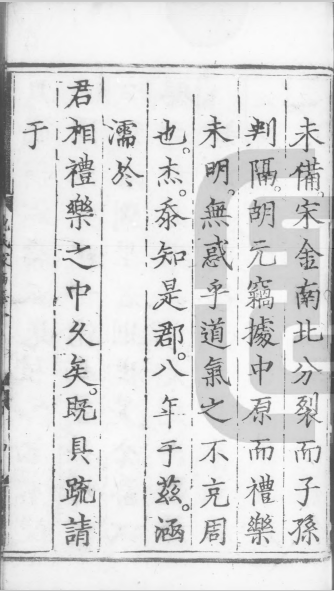 未備。宋金南北分裂而子孫
判隔。胡元竊據中原而禮樂
未明。無惑乎道氣之不充周
也。杰。忝知是郡。八年于茲。涵
濡於
君相禮樂之中久矣。既具疏請
于